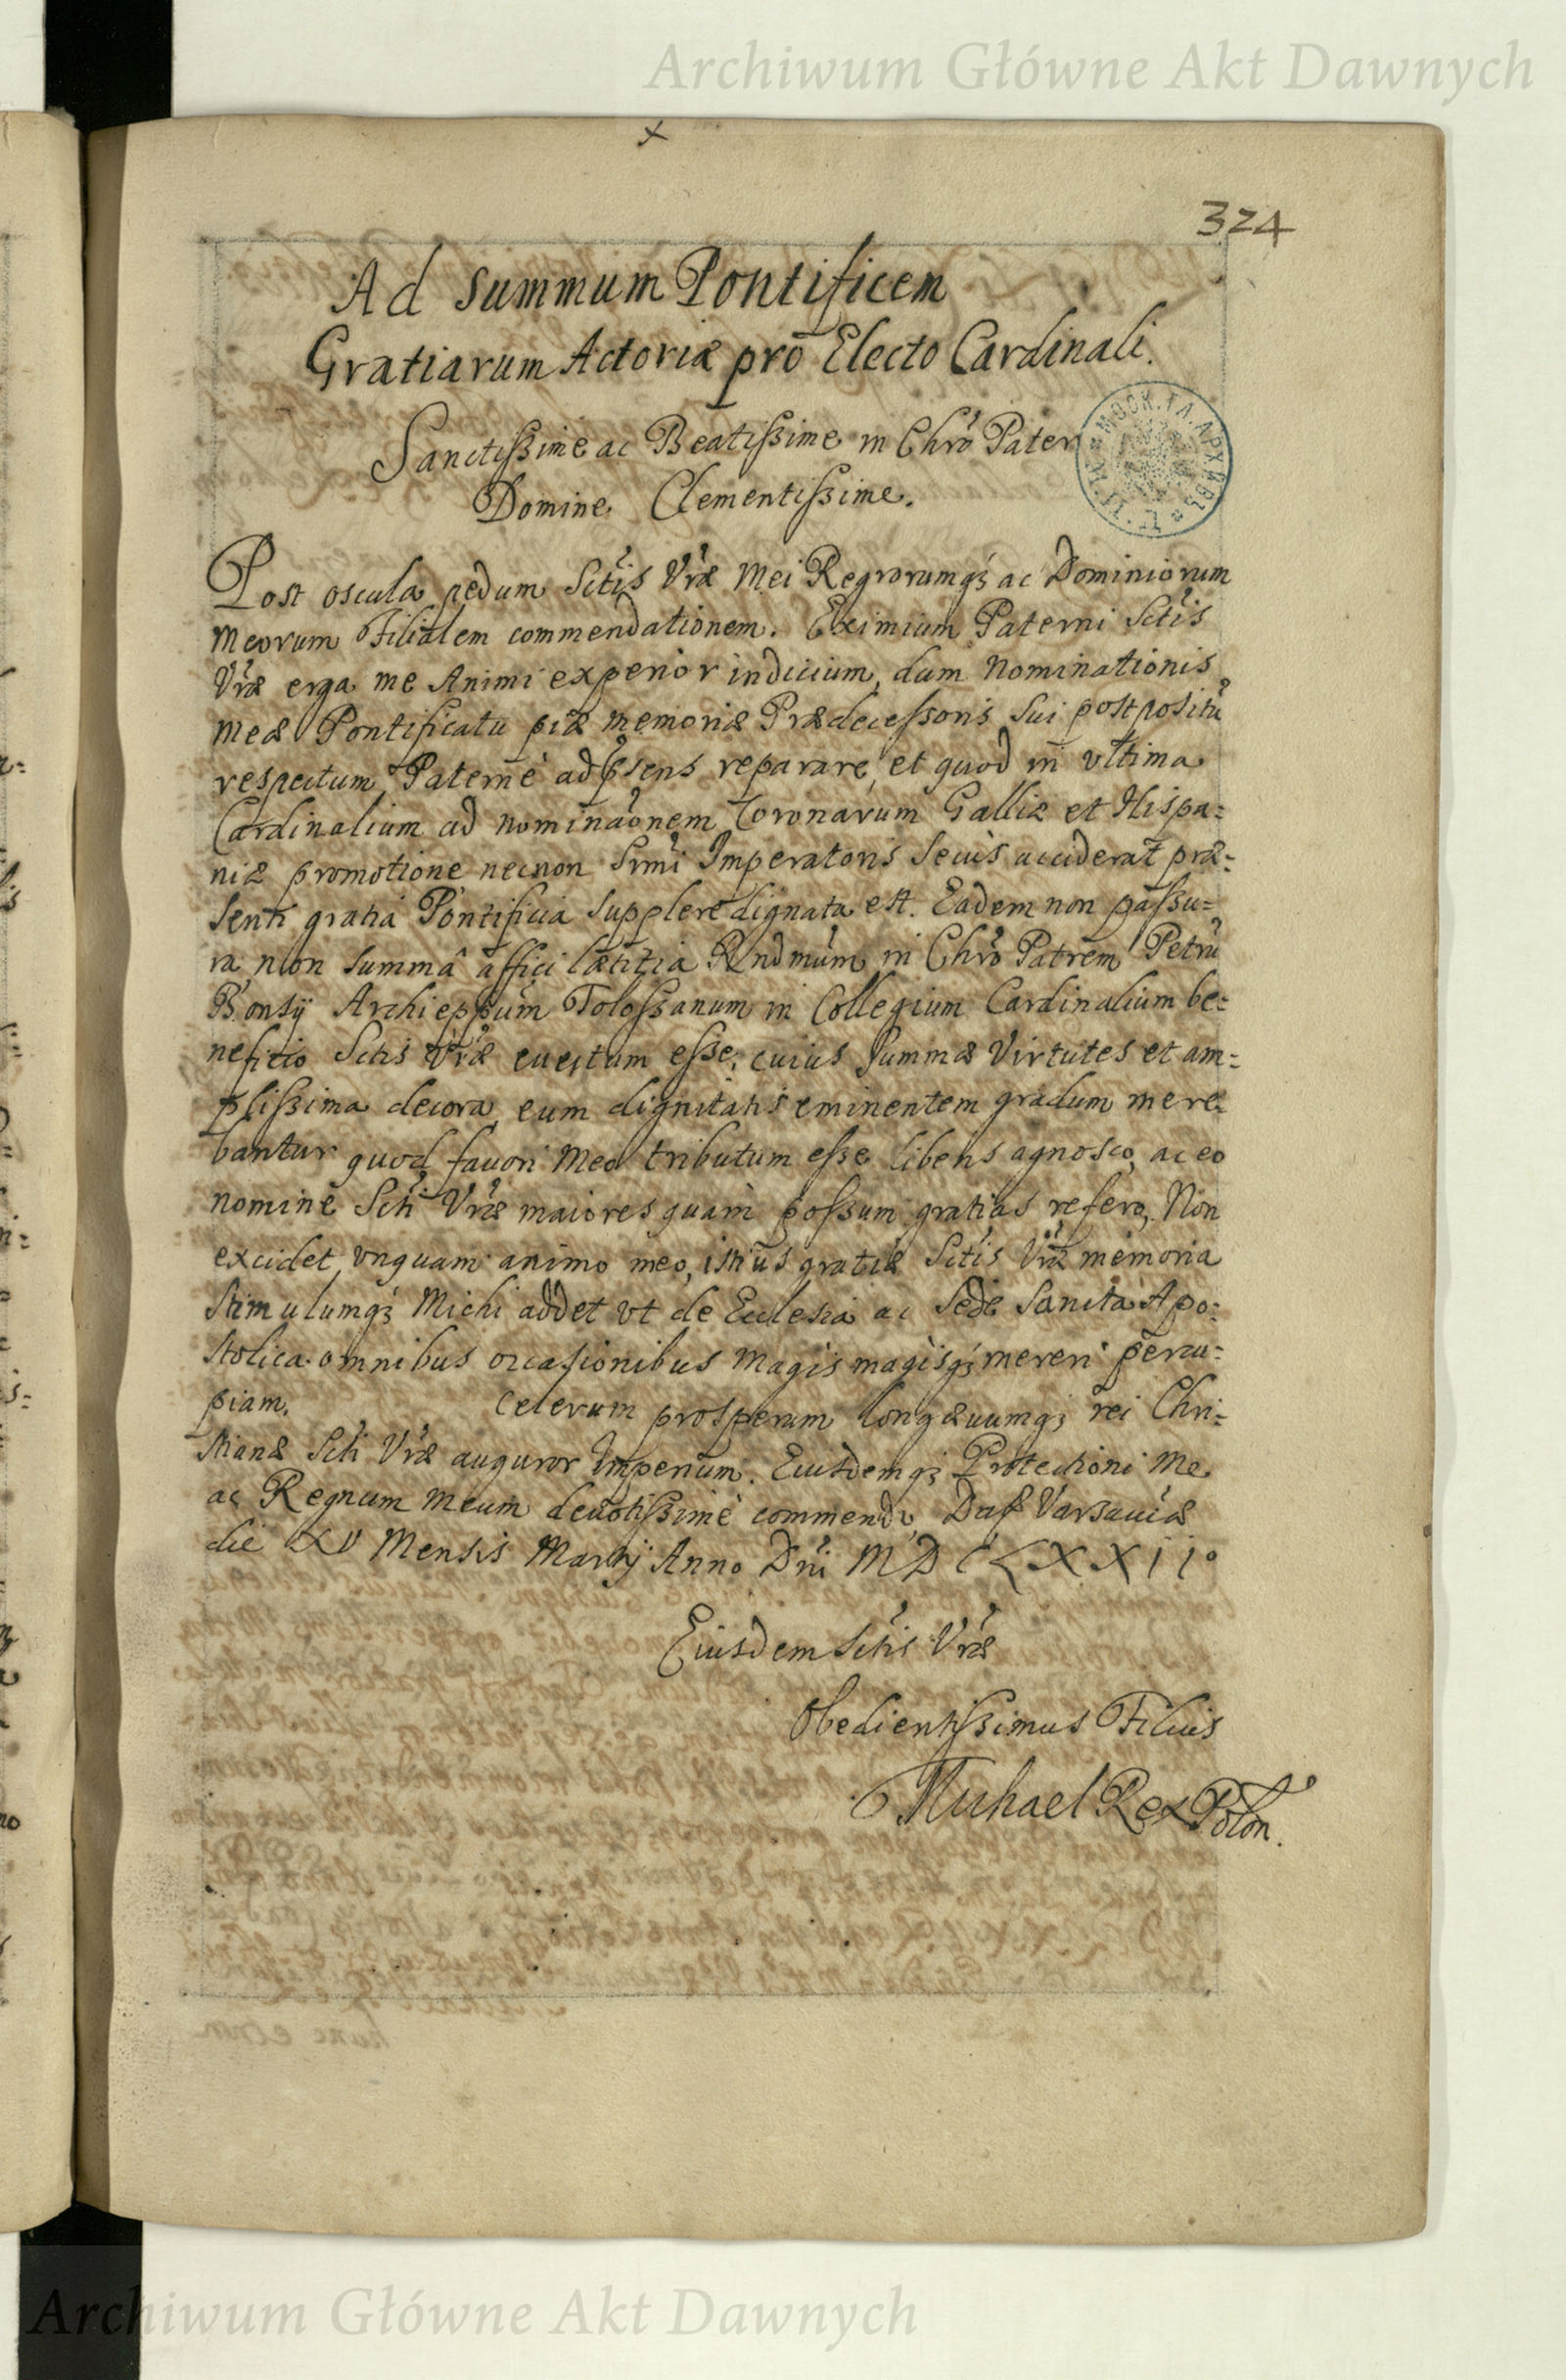 Archiwum Główne Akt Dawnych
324
Ad Summum Pontificem
Gratiarum Actoriæ pro Electo Cardinali.
Sanctissime ac Beatissime in Chro Pater
Domine Clementissime.
МОСК. ГЛ. АРХИВЪ
Post oscula pedum Sctis Vræ Mei Regnorumqȝ ac Dominiorum
Meorum Filialem commendationem. Eximium Paterni Sctis
Vræ erga me Animi experior indicium, dum Nominationis
Meæ Pontificatu piæ memoriæ Prædecessoris Sui postpositũ
respectum Paterne ad psens reparare, et quod in vltima
Cardinalium ad nominaonem Coronarum Galliæ et Hispa=
niæ promotione necnon Srmi Imperatoris Secus acciderat præ=
senti gratiâ Pontificia Supplere dignata est. Eadem non passu=
ra non Summâ affici lætitia Rndmum in Chro Patrem Petrũ
Bonsÿ Archieppum Tolossanum in Collegium Cardinalium be=
neficio Sctis Vræ euectum esse, cuius Summæ Virtutes et am=
plissima decora, eum dignitatis eminentem gradum mere=
bantur quod fauori Meo tributum esse libens agnosco, ac eo
nomine Scti Vræ maiores quam possum gratias refero, Non
excidet vnquam animo meo, istius gratiæ Sctis Vræ memoria
Stimulumqȝ Michi addet vt de Ecclesia ac Sede Sancta Apo=
stolica omnibus occasionibus magis magisqȝ mereri percu=
piam. Ceterum prosperum longæuumqȝ rei Chri=
stianæ Scti Vræ auguror Imperium. Eiusdemqȝ Protectioni Me
ac Regnum Meum deuotissimè commendo, Dat Varsauiæ
die XV Mensis Martÿ Anno Dni MDCLXXII°
Eiusdem Sctis Vræ
Obedientissimus Filius
Michael Rex Polon.
Archiwum Główne Akt Dawnych